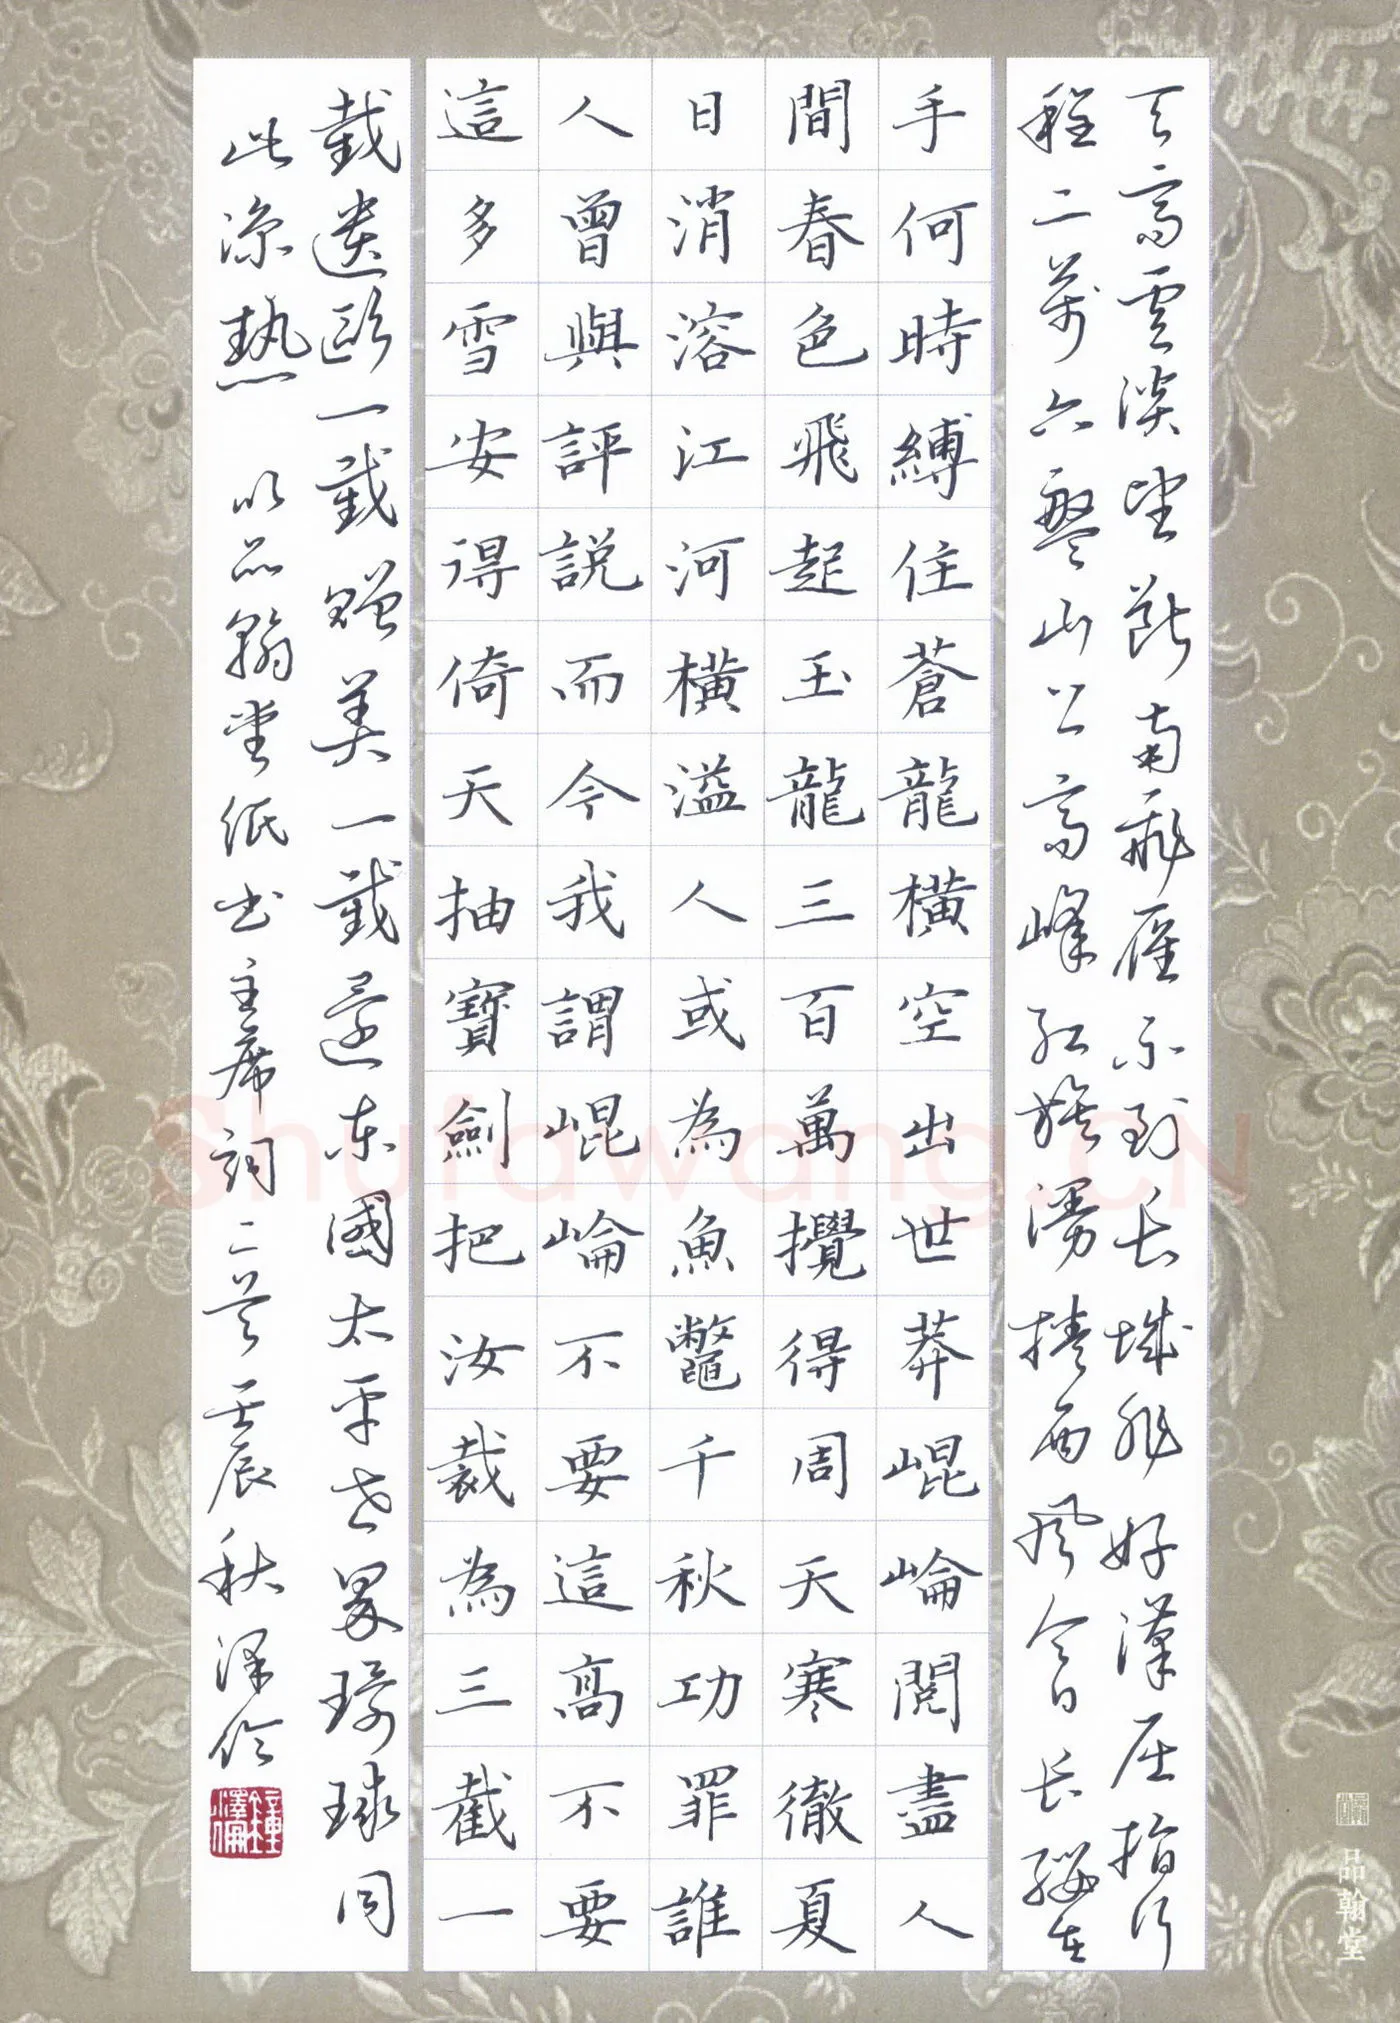 天高雲淡望斷南飛雁不到長城非好漢屈指行
程二萬六盤山上高峰紅旗漫捲西風今日長纓在
手何時縛住蒼龍橫空出世莽崐崘閱盡人
間春色飛起玉龍三百萬攪得周天寒徹夏
日消溶江河橫溢人或為魚鼈千秋功罪誰
人曾與評說而今我謂崐崘不要這高不要
這多雪安得倚天抽寶劍把汝裁為三截一
截遺歐一截贈美一截還東國太平世界環球同
此涼熱 以品翰堂紙書主席詞二首壬辰秋澤倫
鍾澤倫
品翰堂
Shufawang.CN